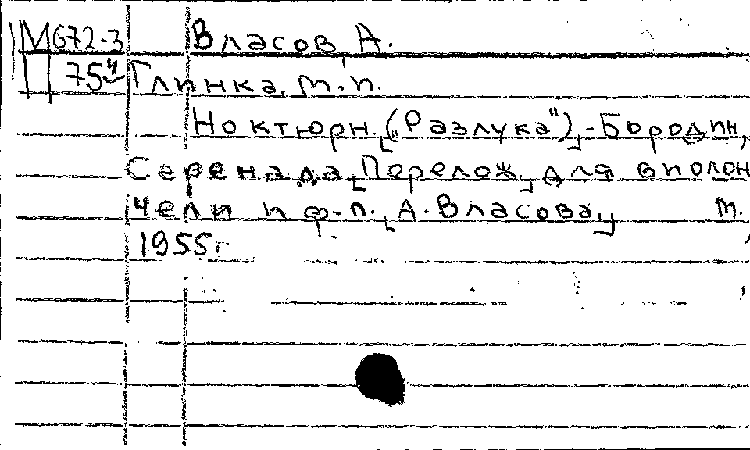 М672-3 Власов, А.
П 75ч Глинка, М.И.
Ноктюрн ("Разлука"),- Бородин,
Серенада, [Перелож.] для виолон
чели и ф-п. [А. Власова,] М.,
1955г